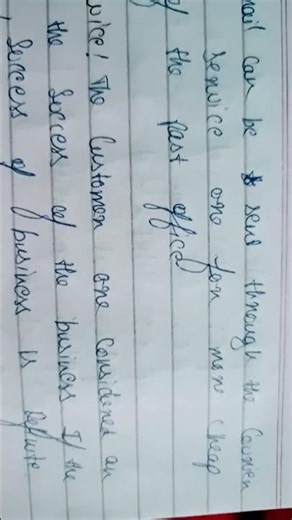 mail can be sent through the Courier
service are far more cheap
of the post office
vice! The Customer are Considered an
the success of the business If the
success of business is definite